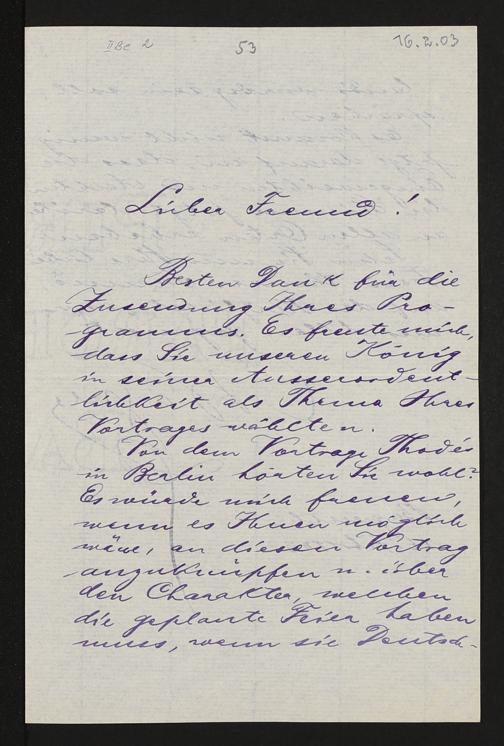 II Bc 2
53
16.2.03
Lieber Freund!
Besten Dank für die
Zusendung Ihres Pro-
gramms. Es freute mich,
dass Sie unseren König
in seiner Ausserordent-
lichkeit als Thema Ihres
Vortrages wählten.
Von dem Vortrage Thodes
in Berlin hörten Sie wohl?
Es würde mich freuen,
wenn es Ihnen möglich
wäre, an diesen Vortrag
anzuknüpfen u. über
den Charakter, welchen
die geplante Feier haben
muss, wenn sie Deutsch-